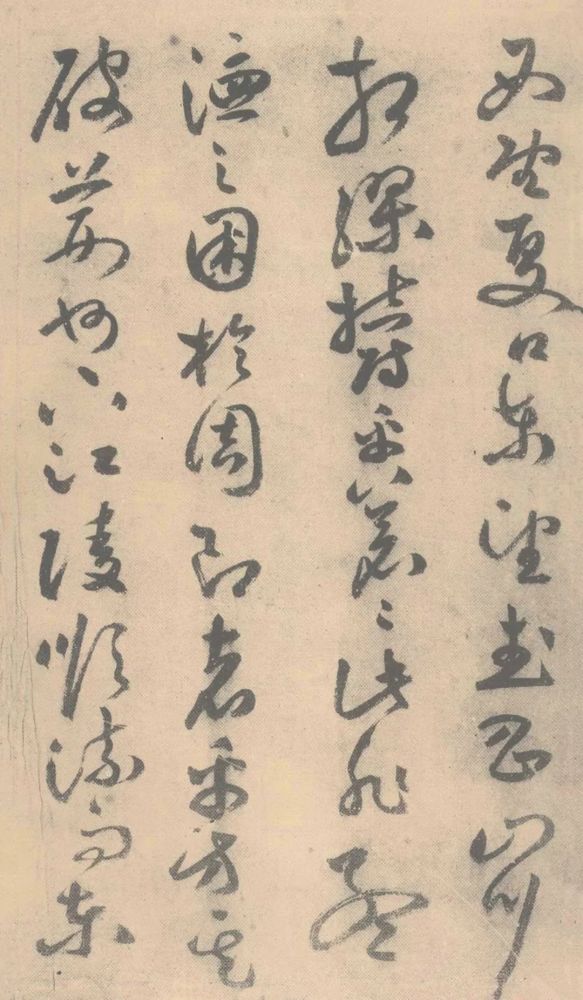 西望夏口東望武昌山川
相繆鬱乎蒼〻此非孟
德之困於周郎者乎方其
破荊州下江陵順流而東